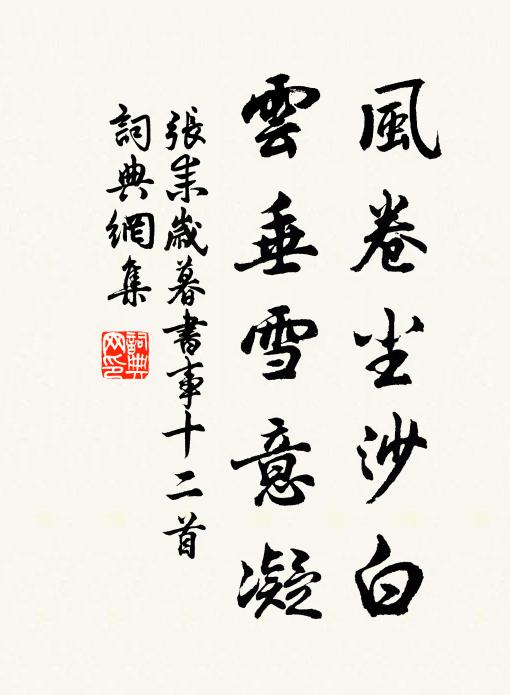 風卷尘沙白
雲垂雪意凝
張耒歲暮書事十二首
詞典網集
詞典
网印